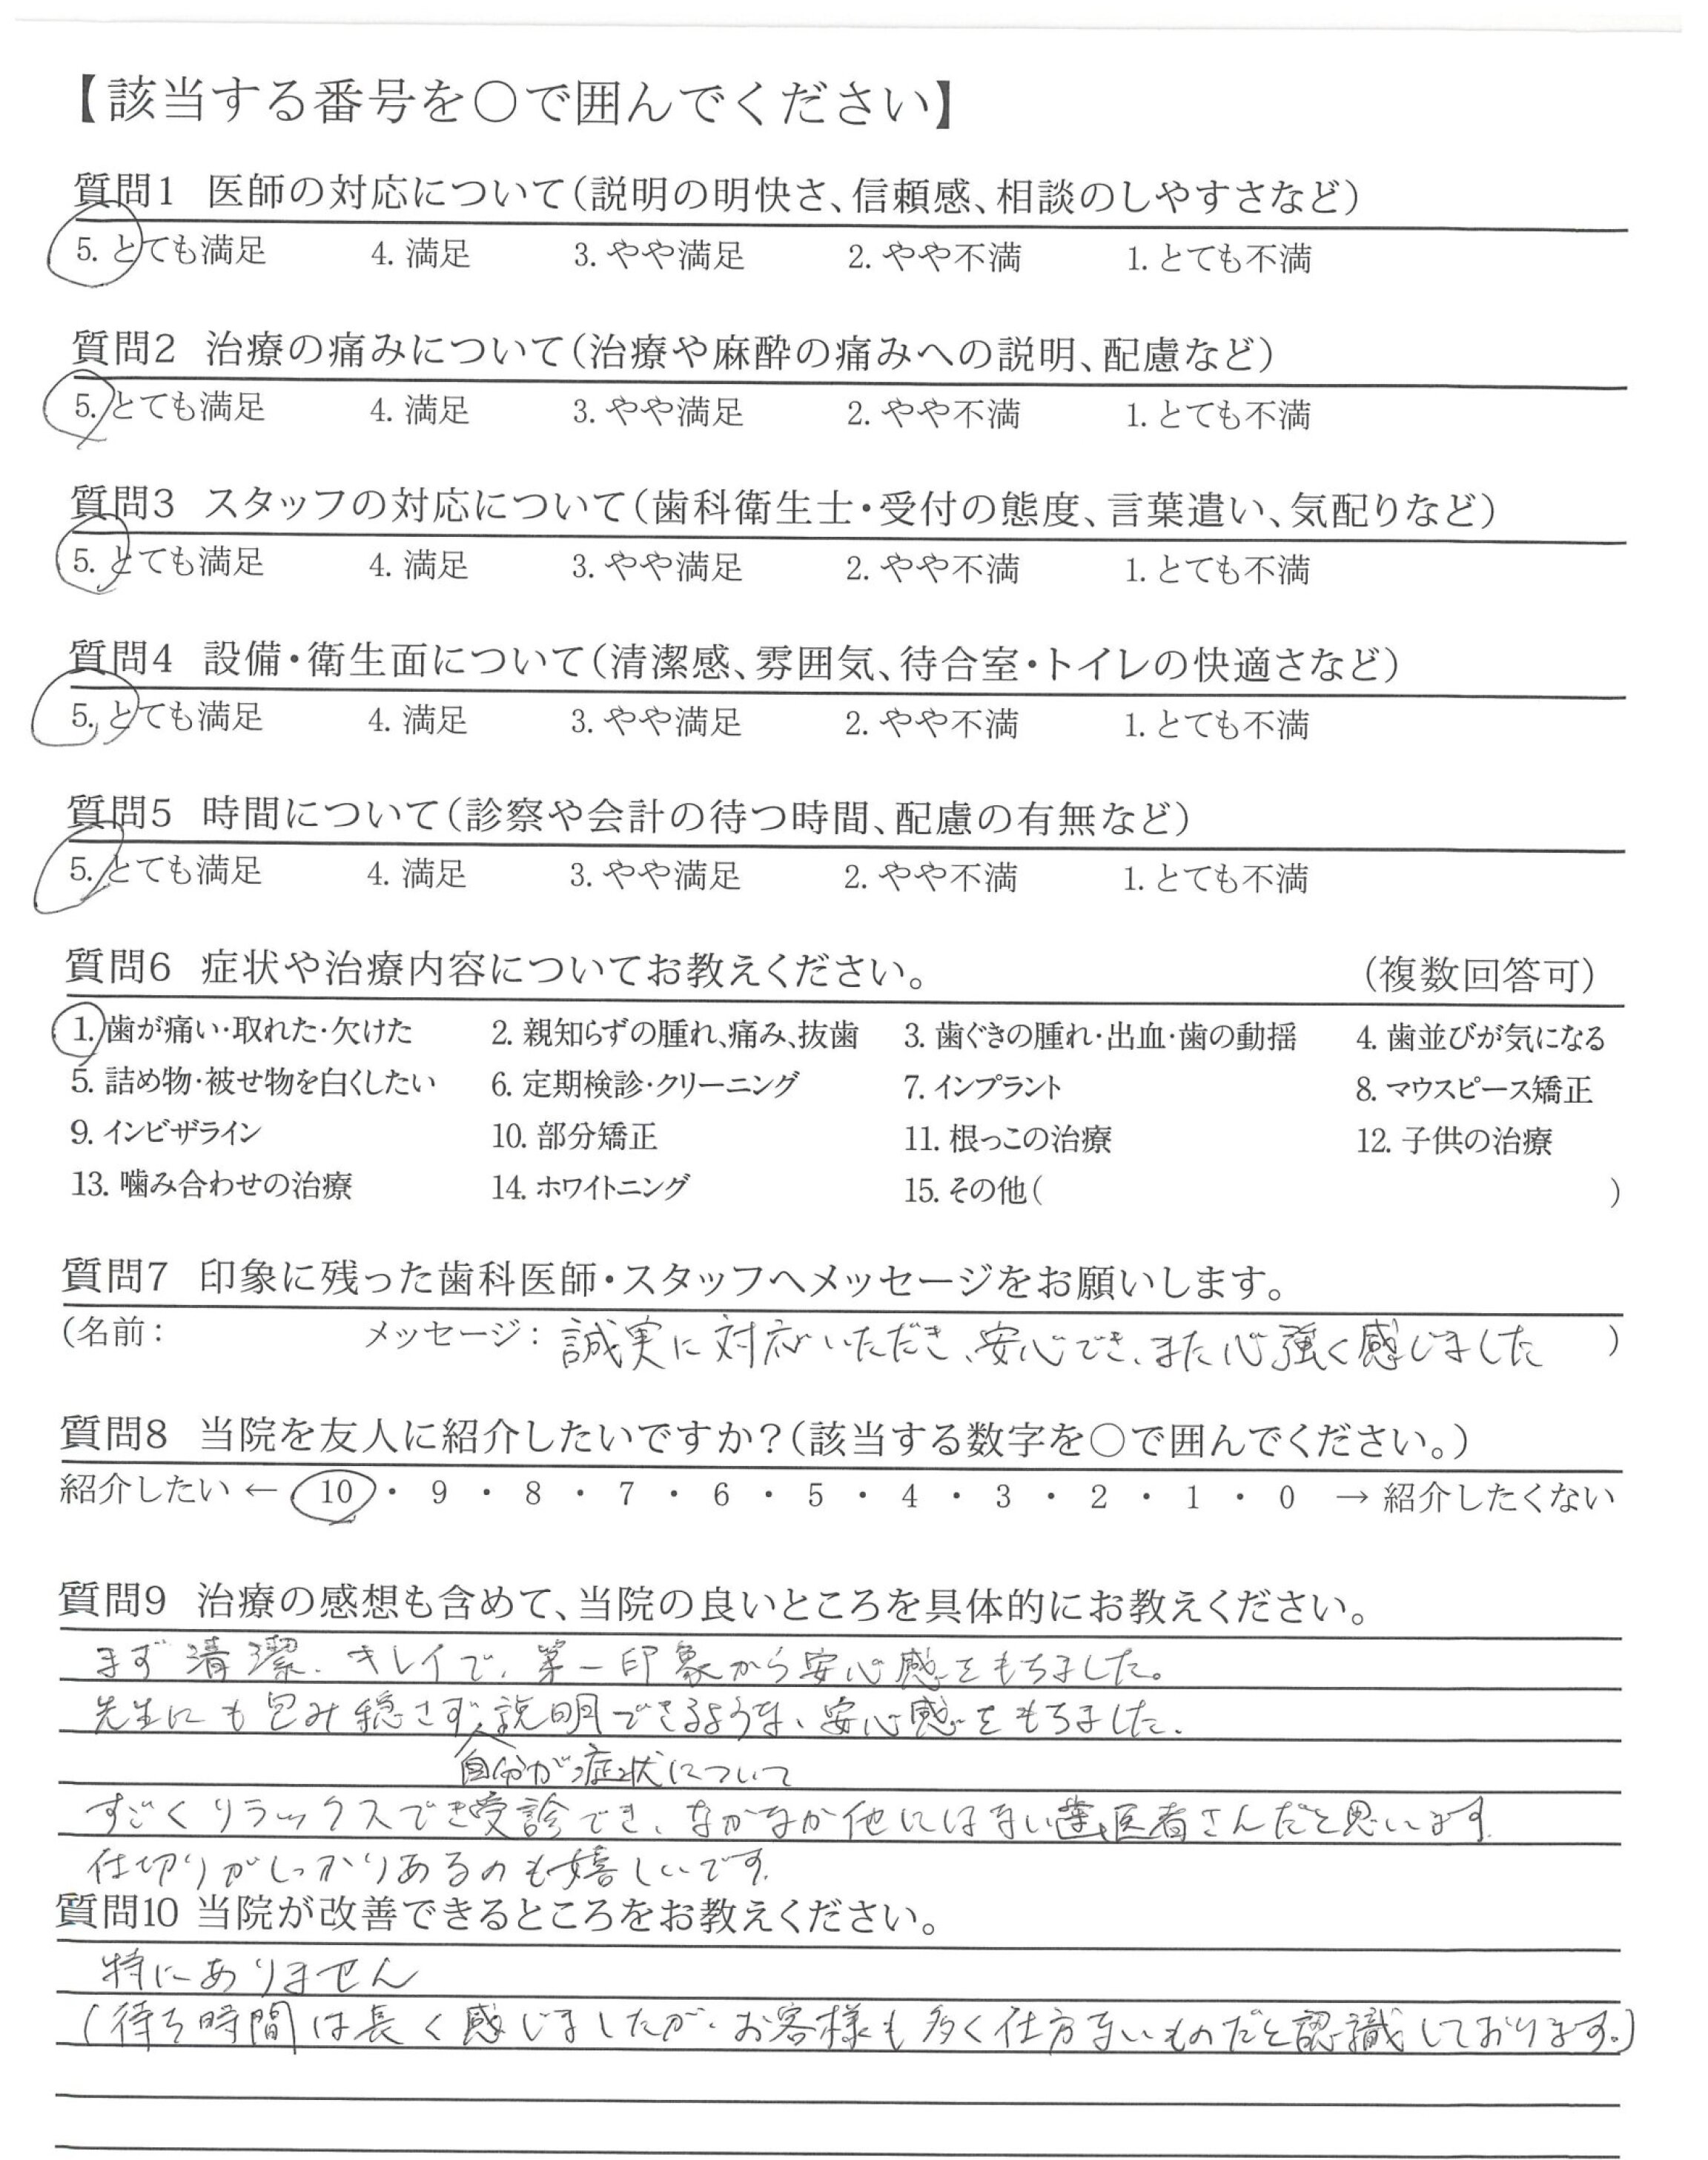 【該当する番号を○で囲んでください】
質問1 医師の対応について(説明の明快さ、信頼感、相談のしやすさなど)
5. とても満足 4. 満足 3. やや満足 2. やや不満 1. とても不満
質問2 治療の痛みについて(治療や麻酔の痛みへの説明、配慮など)
5. とても満足 4. 満足 3. やや満足 2. やや不満 1. とても不満
質問3 スタッフの対応について(歯科衛生士・受付の態度、言葉遣い、気配りなど)
5. とても満足 4. 満足 3. やや満足 2. やや不満 1. とても不満
質問4 設備・衛生面について(清潔感、雰囲気、待合室・トイレの快適さなど)
5. とても満足 4. 満足 3. やや満足 2. やや不満 1. とても不満
質問5 時間について(診察や会計の待つ時間、配慮の有無など)
5. とても満足 4. 満足 3. やや満足 2. やや不満 1. とても不満
質問6 症状や治療内容についてお教えください。 (複数回答可)
1. 歯が痛い・取れた・欠けた 2. 親知らずの腫れ、痛み、抜歯 3. 歯ぐきの腫れ・出血・歯の動揺 4. 歯並びが気になる
5. 詰め物・被せ物を白くしたい 6. 定期検診・クリーニング 7. インプラント 8. マウスピース矯正
9. インビザライン 10. 部分矯正 11. 根っこの治療 12. 子供の治療
13. 噛み合わせの治療 14. ホワイトニング 15. その他( )
質問7 印象に残った歯科医師・スタッフへメッセージをお願いします。
(名前: メッセージ: 誠実に対応いただき、安心でき、また心強く感じました )
質問8 当院を友人に紹介したいですか?(該当する数字を○で囲んでください。)
紹介したい ← 10 ・ 9 ・ 8 ・ 7 ・ 6 ・ 5 ・ 4 ・ 3 ・ 2 ・ 1 ・ 0 → 紹介したくない
質問9 治療の感想も含めて、当院の良いところを具体的にお教えください。
まず清潔、キレイで、第一印象から安心感をもちました。
先生にも包み穏さず、説明できるような、安心感をもちました。
自分が症状について
すごくリラックスでき受診でき、なかなか他にはない歯医者さんだと思います
仕切りがしっかりあるのも嬉しいです。
質問10 当院が改善できるところをお教えください。
特にありません
(待ち時間は長く感じましたが、お客様も多く仕方ないものだと認識しております。)